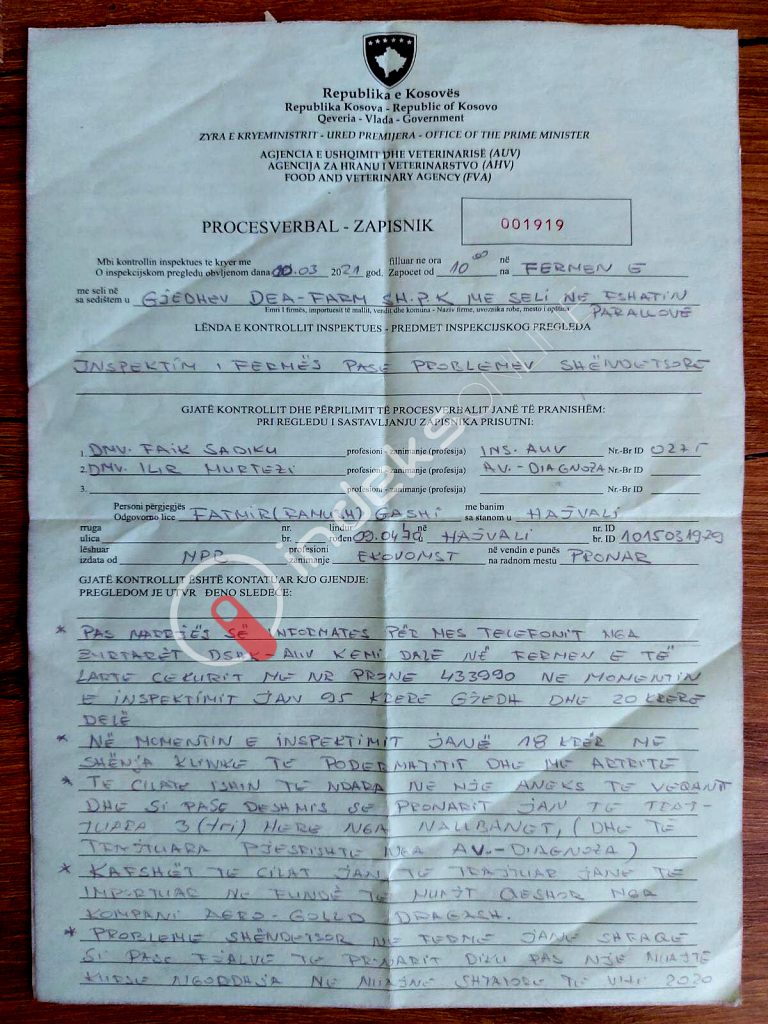 Republika e Kosovës
Republika Kosova - Republic of Kosovo
Qeveria - Vlada - Government
ZYRA E KRYEMINISTRIT - URED PREMIJERA - OFFICE OF THE PRIME MINISTER
AGJENCIA E USHQIMIT DHE VETERINARISË (AUV)
AGENCIJA ZA HRANU I VETERINARSTVO (AHV)
FOOD AND VETERINARY AGENCY (FVA)
PROCESVERBAL - ZAPISNIK 001919
Mbi kontrollin inspektues te kryer me filluar ne ora në
O inspekcijskom pregledu obvljenom dana 10.03 2021 god. Zapocet od 10 00 na FERMEN E
me seli në
sa sedištem u GJEDHEV DEA-FARM SH.P.K ME SELI NE FSHATIN
Emri I firmës, importuesit të mallit, vendit dhe komuna - Naziv firme, uvoznika robe, mesto i opština PARALLOVË
LËNDA E KONTROLLIT INSPEKTUES - PREDMET INSPEKCIJSKOG PREGLEDA
INSPEKTIM I FERMËS PASE PROBLEMEV SHËNDETSORE
GJATË KONTROLLIT DHE PËRPILIMIT TË PROCESVERBALIT JANË TË PRANISHËM:
PRI REGLEDU I SASTAVLJANJU ZAPISNIKA PRISUTNI:
1. DMV. FAIK SADIKU profesioni - zanimanje (profesija) INS. AUV Nr.-Br ID 0275
2. DMV. ILIR MURTEZI profesioni - zanimanje (profesija) AV.-DIAGNOZA Nr.-Br ID
3. profesioni - zanimanje (profesija) Nr.-Br ID
Personi përgjegjës me banim
Odgovorno lice FATMIR (RAMUSH) GASHI sa stanom u HAJVALI
rruga nr. lindur në nr. ID
ulica br. rođen 09.04.70 u HAJVALI br. ID 1015031929
lëshuar profesioni në vendin e punës
izdata od MPB zanimanje EKONOMST na radnom mestu PRONAR
GJATË KONTROLLIT ËSHTË KONTATUAR KJO GJENDJE:
PREGLEDOM JE UTVR ĐENO SLEDEĆE:
* PAS MARRJËS SË INFORMATES PËR MES TELEFONIT NGA
ZYRTARËT DSHK AUV KEMI DALË NË FERMEN E TË
LARTE CEKURIT ME NR PRONE 433990 NE MOMENTIN
E INSPEKTIMIT JAN 95 KRERE GJEDH DHE 20 KRERE
DELË
* NË MOMENTIN E INSPEKTIMIT JANË 18 KRËR ME
SHËNJA KLINKE TE PODERMATITIT DHE ME ARTRITE
* TE CILATE ISHIN TE NDARA NE NJE ANEKS TE VEQANT
DHE SI PASE DESHMIS SE PRONARIT JAN TE TRAJ-
TUARA 3 (tri) HERE NGA NALLBANET, (DHE TË
TRAJTUARA PJESRISHTE NGA AV.-DIAGNOZA)
* KAFSHËT TE CILAT JAN TE TRAJTUAR JANE TE
IMPORTUAR NE FUNDË TE MUAJT QESHOR NGA
KOMPANI AGRO-GOLLD DRAGASH.
* PROBLEME SHËNDETSOR NE FERME JANE SHFAQE
SI PASE FJALVE TE PRONARIT DIKU PAS NJE MUAJTE
KURSE NGORDHJA NE MUAJNE SHTATORE TE VITI 2020
indeksONLINE